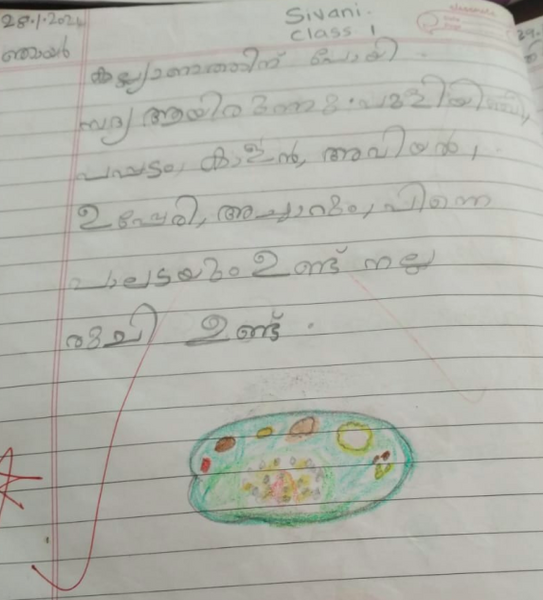 28.1.2024
ഞായർ
Sivani.
class 1
കല്യാണത്തിന് പോയി.
സദ്യ ആയിരുന്നു. പുളിയിഞ്ചി,
പപ്പടം, കാളൻ, അവിയൽ,
ഉപ്പേരി, അച്ചാറും, പിന്നെ
പാലടയും ഉണ്ട് നല്ല
രുചി ഉണ്ട്.